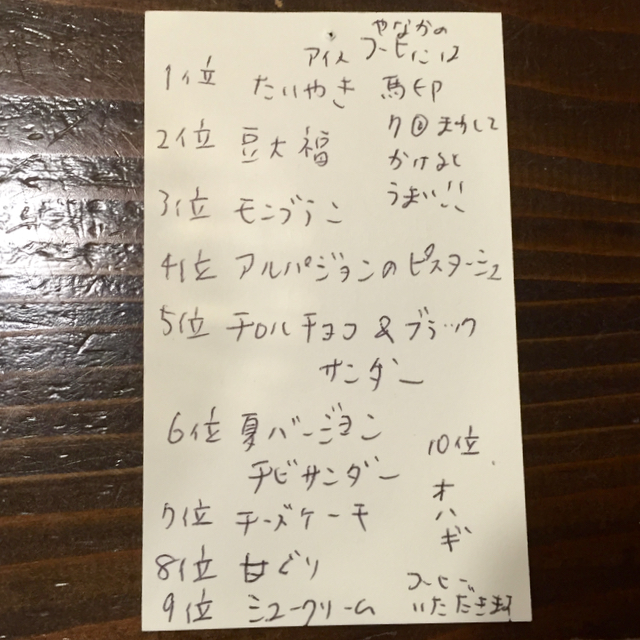 やなかの
コーヒーには
アイス
1位 たいやき 馬印
7回まわして
かけると
うまい!!
2位 豆大福
3位 モンブラン
4位 アルパジョンのピスターシュ
5位 チロルチョコ & ブラック
サンダー
6位 夏バージョン
チビサンダー
7位 チーズケーキ
8位 甘ぐり
9位 シュークリーム
10位
オハギ
コーヒーご
いただきます